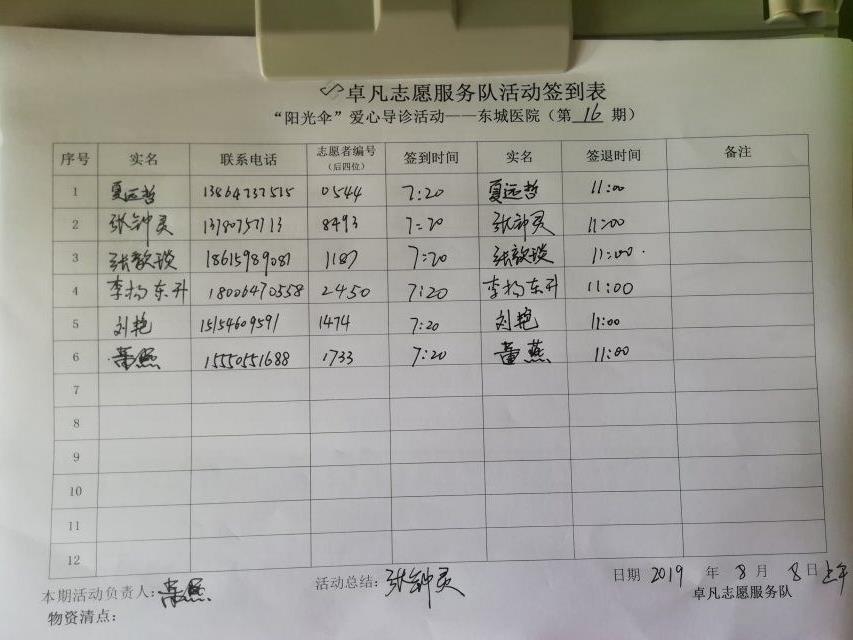 卓凡志愿服务队活动签到表
“阳光伞”爱心导诊活动——东城医院(第 16 期)
序号 实名 联系电话 志愿者编号(后四位) 签到时间 实名 签退时间 备注
1 夏远哲 13864737515 0544 7:20 夏远哲 11:00
2 张钟灵 13780757113 8493 7:20 张钟灵 11:00
3 张歆琰 18615989087 1187 7:20 张歆琰 11:00
4 李杨东升 18006470558 2450 7:20 李杨东升 11:00
5 刘艳 15154609591 1474 7:20 刘艳 11:00
6 董燕 15550551688 1733 7:20 董燕 11:00
7
8
9
10
11
12
本期活动负责人:董燕 活动总结:张钟灵 日期 2019 年 8 月 8 日上午
物资清点: 卓凡志愿服务队